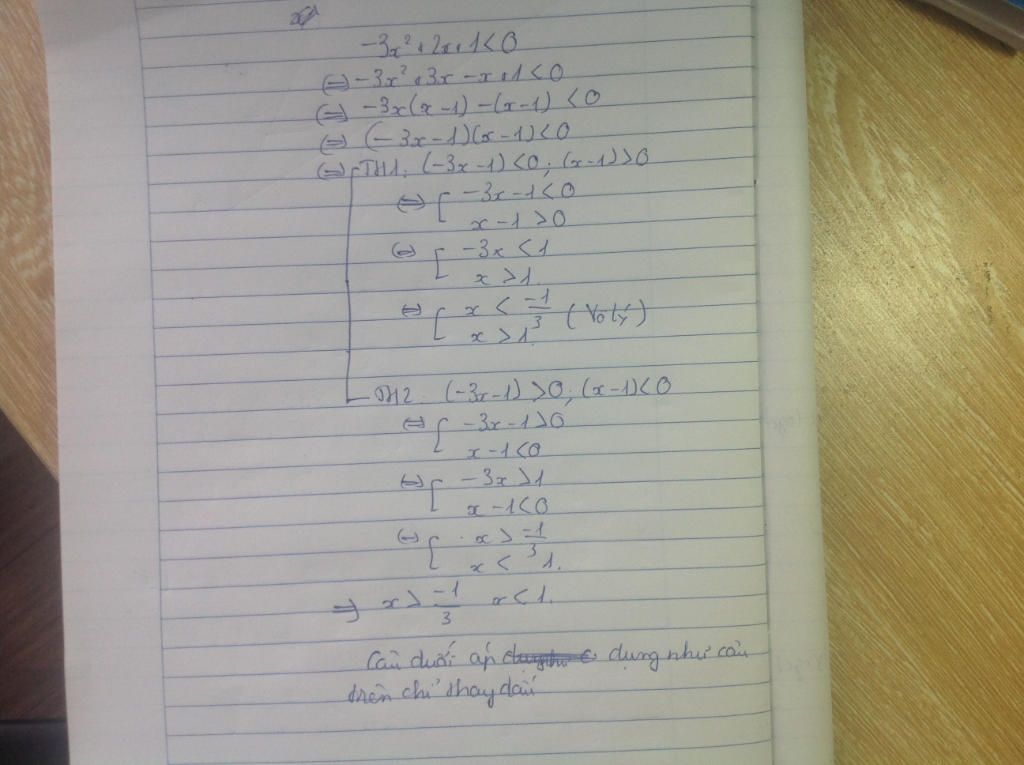 -3x² + 2x + 1 < 0
⇔ -3x² + 3x - x + 1 < 0
⇔ -3x(x-1) - (x-1) < 0
⇔ (-3x-1)(x-1) < 0
⇔ TH1: (-3x-1) < 0; (x-1) > 0
⇔ [ -3x-1 < 0
x-1 > 0
⇔ [ -3x < 1
x > 1
⇔ [ x < -1/3 (Vô lý)
x > 1
TH2: (-3x-1) > 0; (x-1) < 0
⇔ [ -3x-1 > 0
x-1 < 0
⇔ [ -3x > 1
x-1 < 0
⇔ [ x > -1/3
x < 1.
⇒ x > -1/3 x < 1.
Câu dưới áp dụng như câu
trên chỉ thay dấu